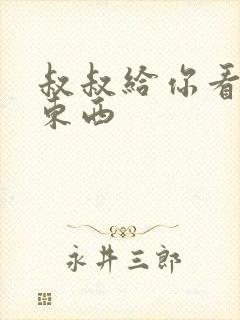 叔叔給你看
東西
永井三郎